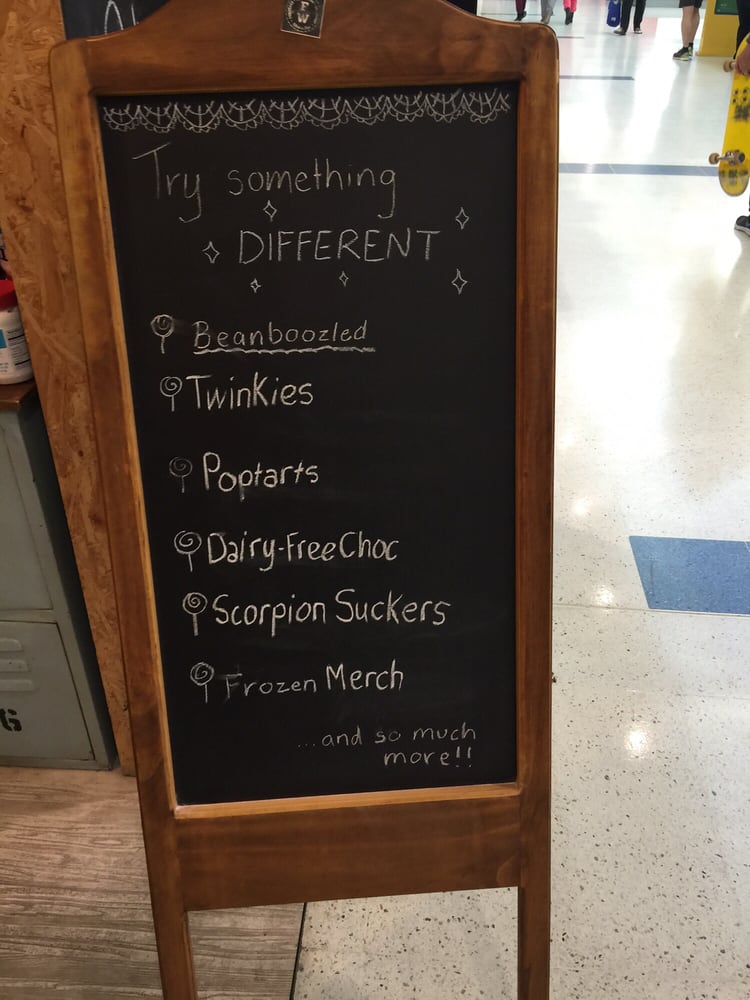 F
W
Try something
DIFFERENT
Beanboozled
Twinkies
Poptarts
Dairy-Free Choc
Scorpion Suckers
Frozen Merch
...and so much
more!!
6